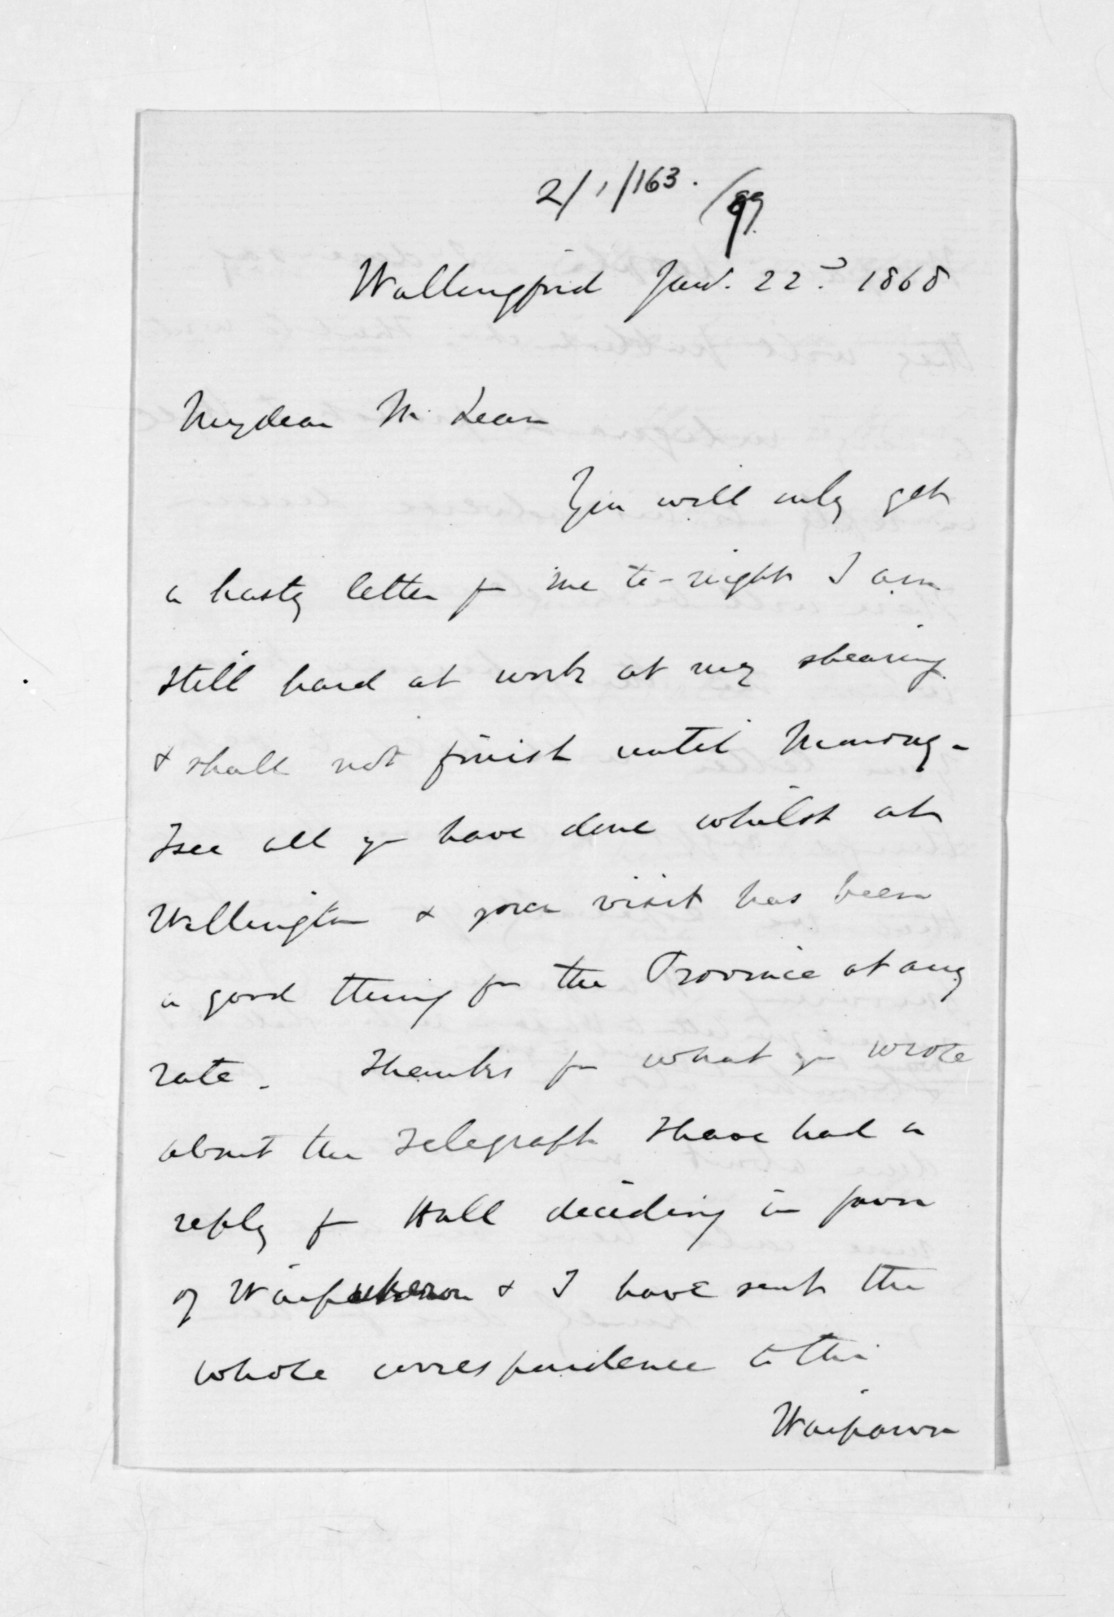 2/1/163. /99.
Wallingford Jany. 22d. 1868
My dear McLean
You will only get
a hasty letter fr me to-night I am
still hard at work at my shearing
& shall not finish until Monday -
I see all yr have done whilst at
Wellington & your visit has been
a good thing for the Province at any
rate. Thanks for what yu wrote
about the Telegraph I have had a
reply fr Hall deciding in favor
of Waipukurau & I have sent the
whole correspondence to the
Waipawa